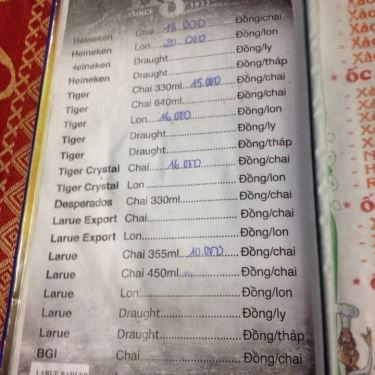 SINCE 1932
Heineken Chai 18.000 Đồng/chai
Heineken Lon 20.000 Đồng/lon
Heineken Draught Đồng/ly
Heineken Draught Đồng/tháp
Tiger Chai 330ml 15.000 Đồng/chai
Tiger Chai 640ml Đồng/chai
Tiger Lon 16.000 Đồng/lon
Tiger Draught Đồng/ly
Tiger Draught Đồng/tháp
Tiger Crystal Chai 16.000 Đồng/chai
Tiger Crystal Lon Đồng/lon
Desperados Chai 330ml Đồng/chai
Larue Export Chai Đồng/chai
Larue Export Lon Đồng/lon
Larue Chai 355ml 10.000 Đồng/chai
Larue Chai 450ml Đồng/chai
Larue Lon Đồng/lon
Larue Draught Đồng/ly
Larue Draught Đồng/tháp
BGI Chai Đồng/chai
ỐC